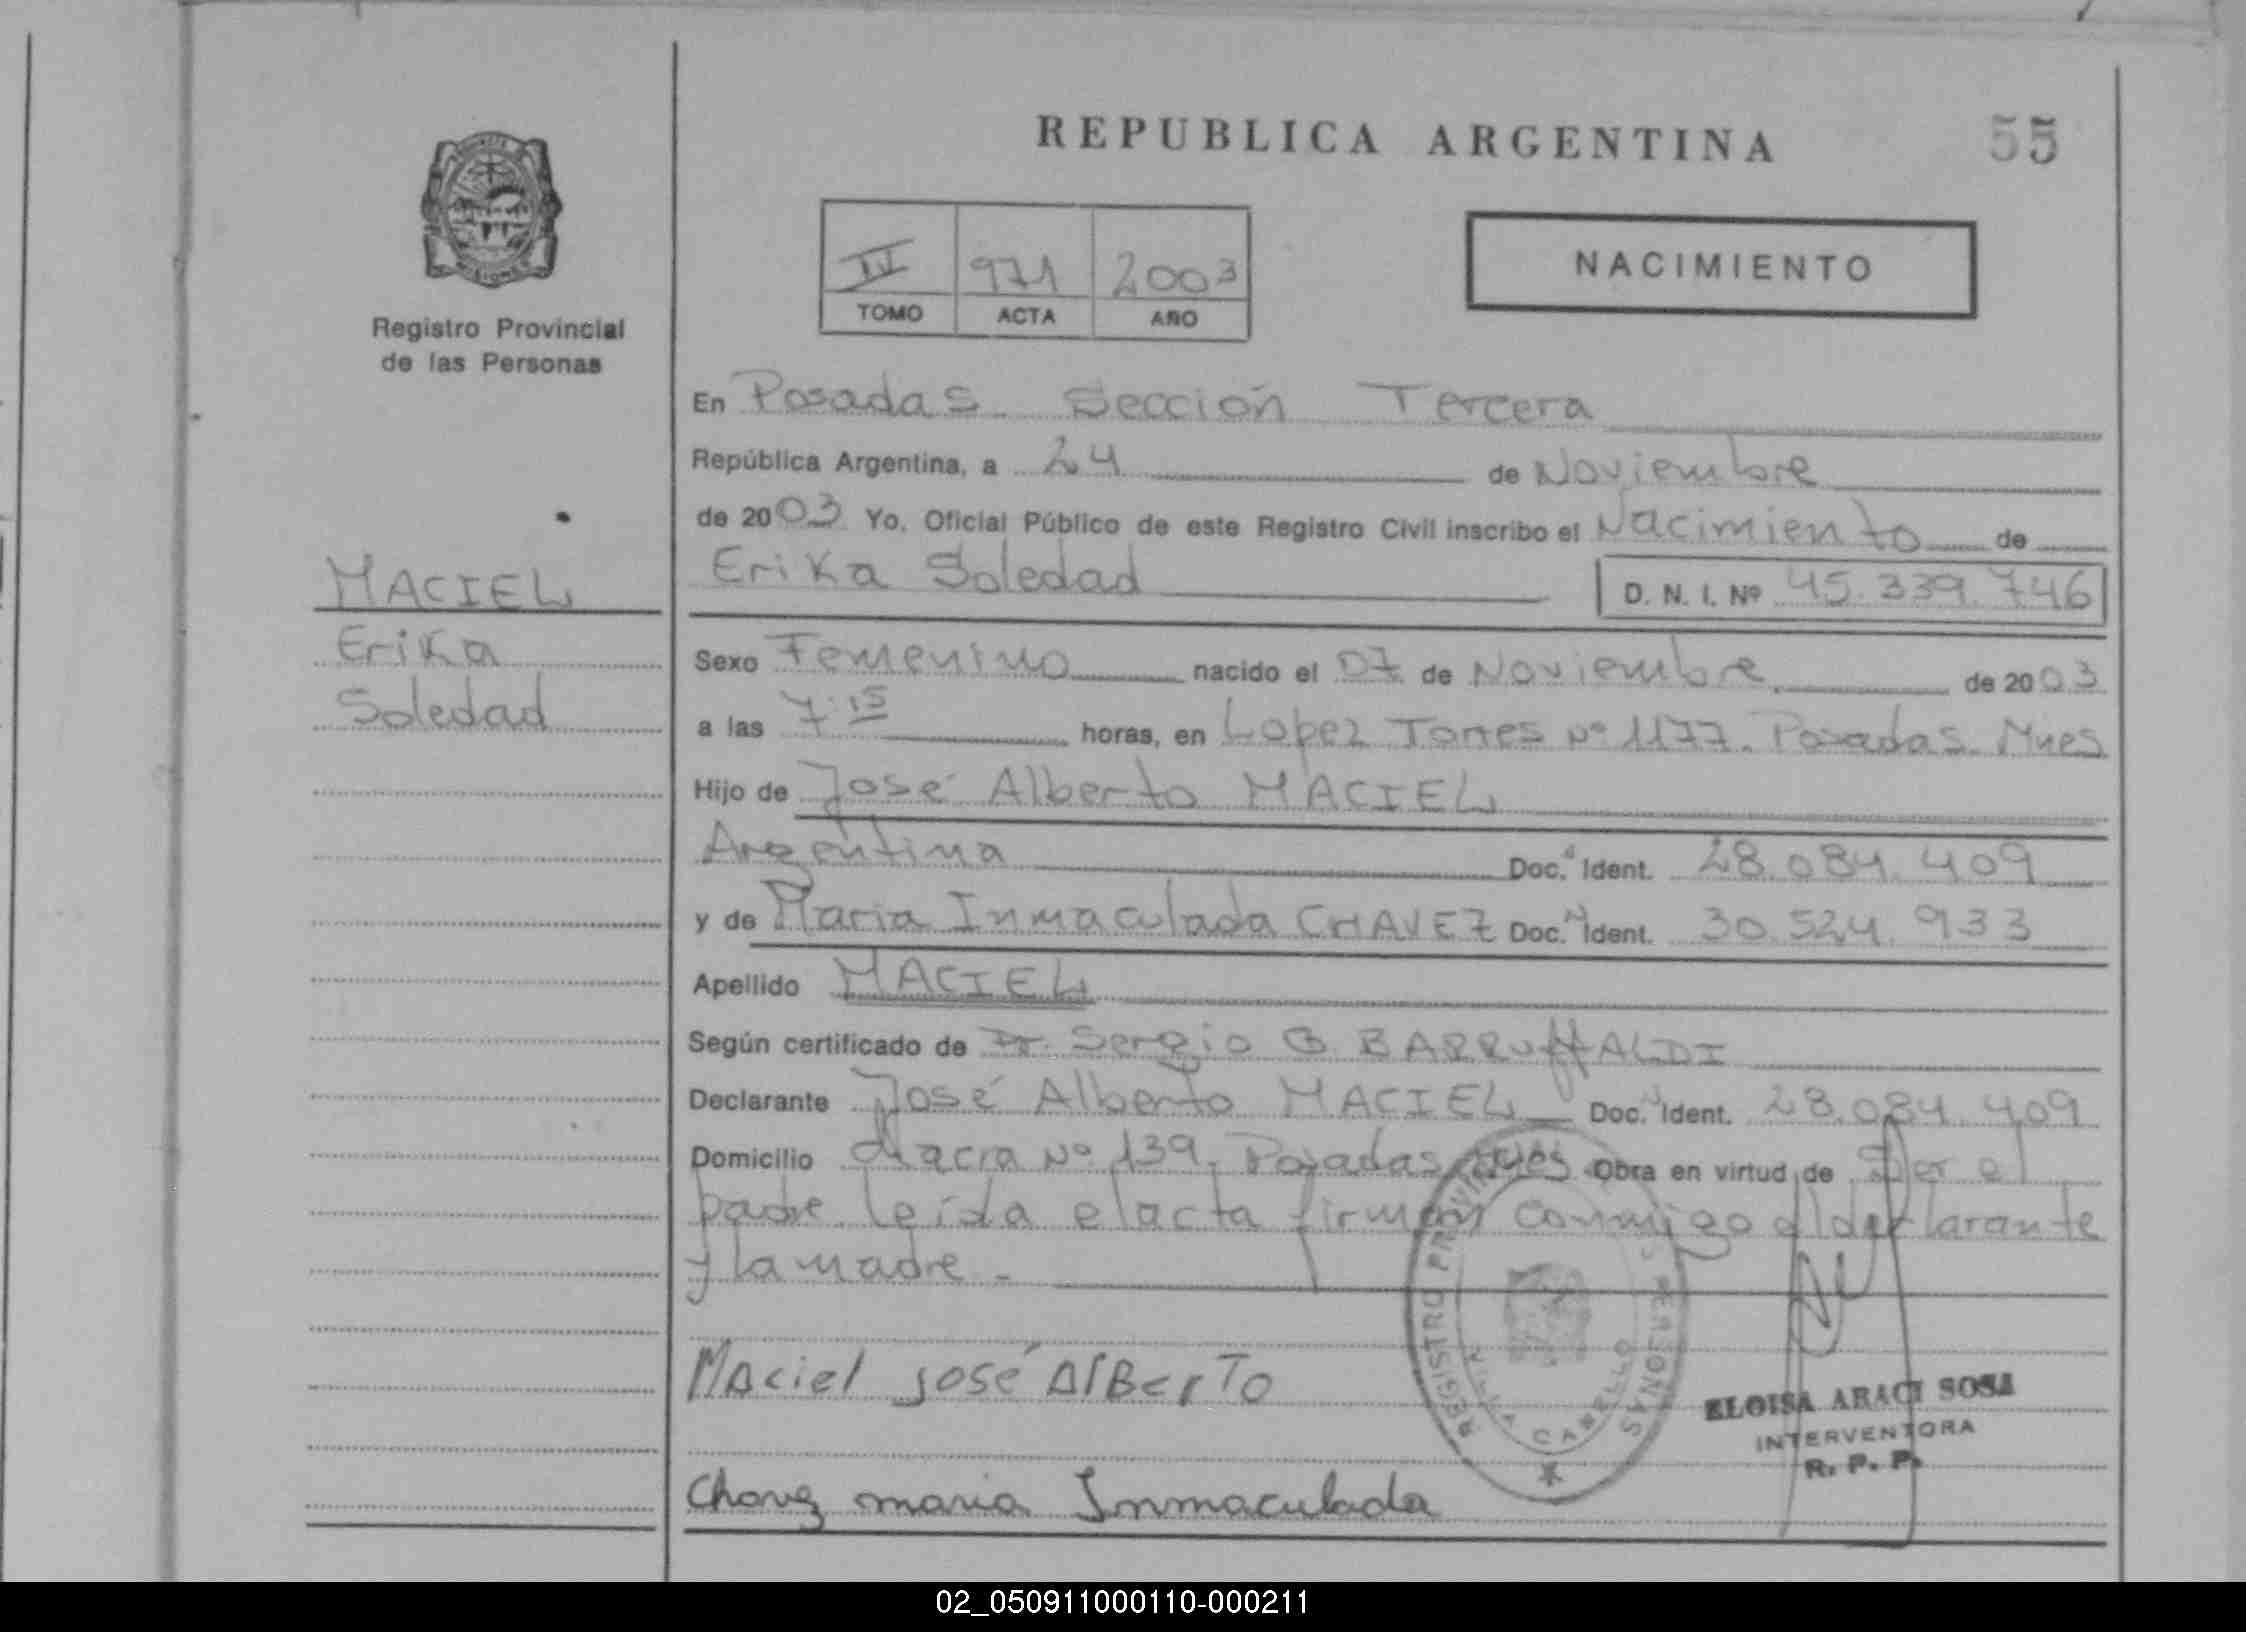 REPUBLICA ARGENTINA
55
Registro Provincial
de las Personas
971 2003
TOMO ACTA AÑO
NACIMIENTO
En Posadas Sección Tercera
República Argentina, a 24 de Noviembre
de 2003 Yo, Oficial Público de este Registro Civil inscribo el Nacimiento de
Erika Soledad D. N. I. Nº 45.339.746
MACIEL
Erika
Soledad
Sexo Femenino nacido el 07 de Noviembre de 2003
a las 7:15 horas, en Lopez Torres Nº 1177. Posadas. Mnes
Hijo de José Alberto MACIEL
Argentina Doc. Ident. 28.084.409
y de Maria Inmaculada CHAVEZ Doc. Ident. 30.524.933
Apellido MACIEL
Según certificado de Dr. Sergio G. BARRUffALDI
Declarante José Alberto MACIEL Doc. Ident. 28.084.409
Domicilio chacra Nº 139. Posadas Mnes Obra en virtud de Ser el
padre leída el acta firman conmigo el declarante
y la madre.-
Maciel José Alberto
REGISTRO PROVINCIAL PERSONAS
VILLA CABELLO
ELOISA ARACI SOSA
INTERVENTORA
R. P. P.
Chavez maria Inmaculada
02_050911000110-000211